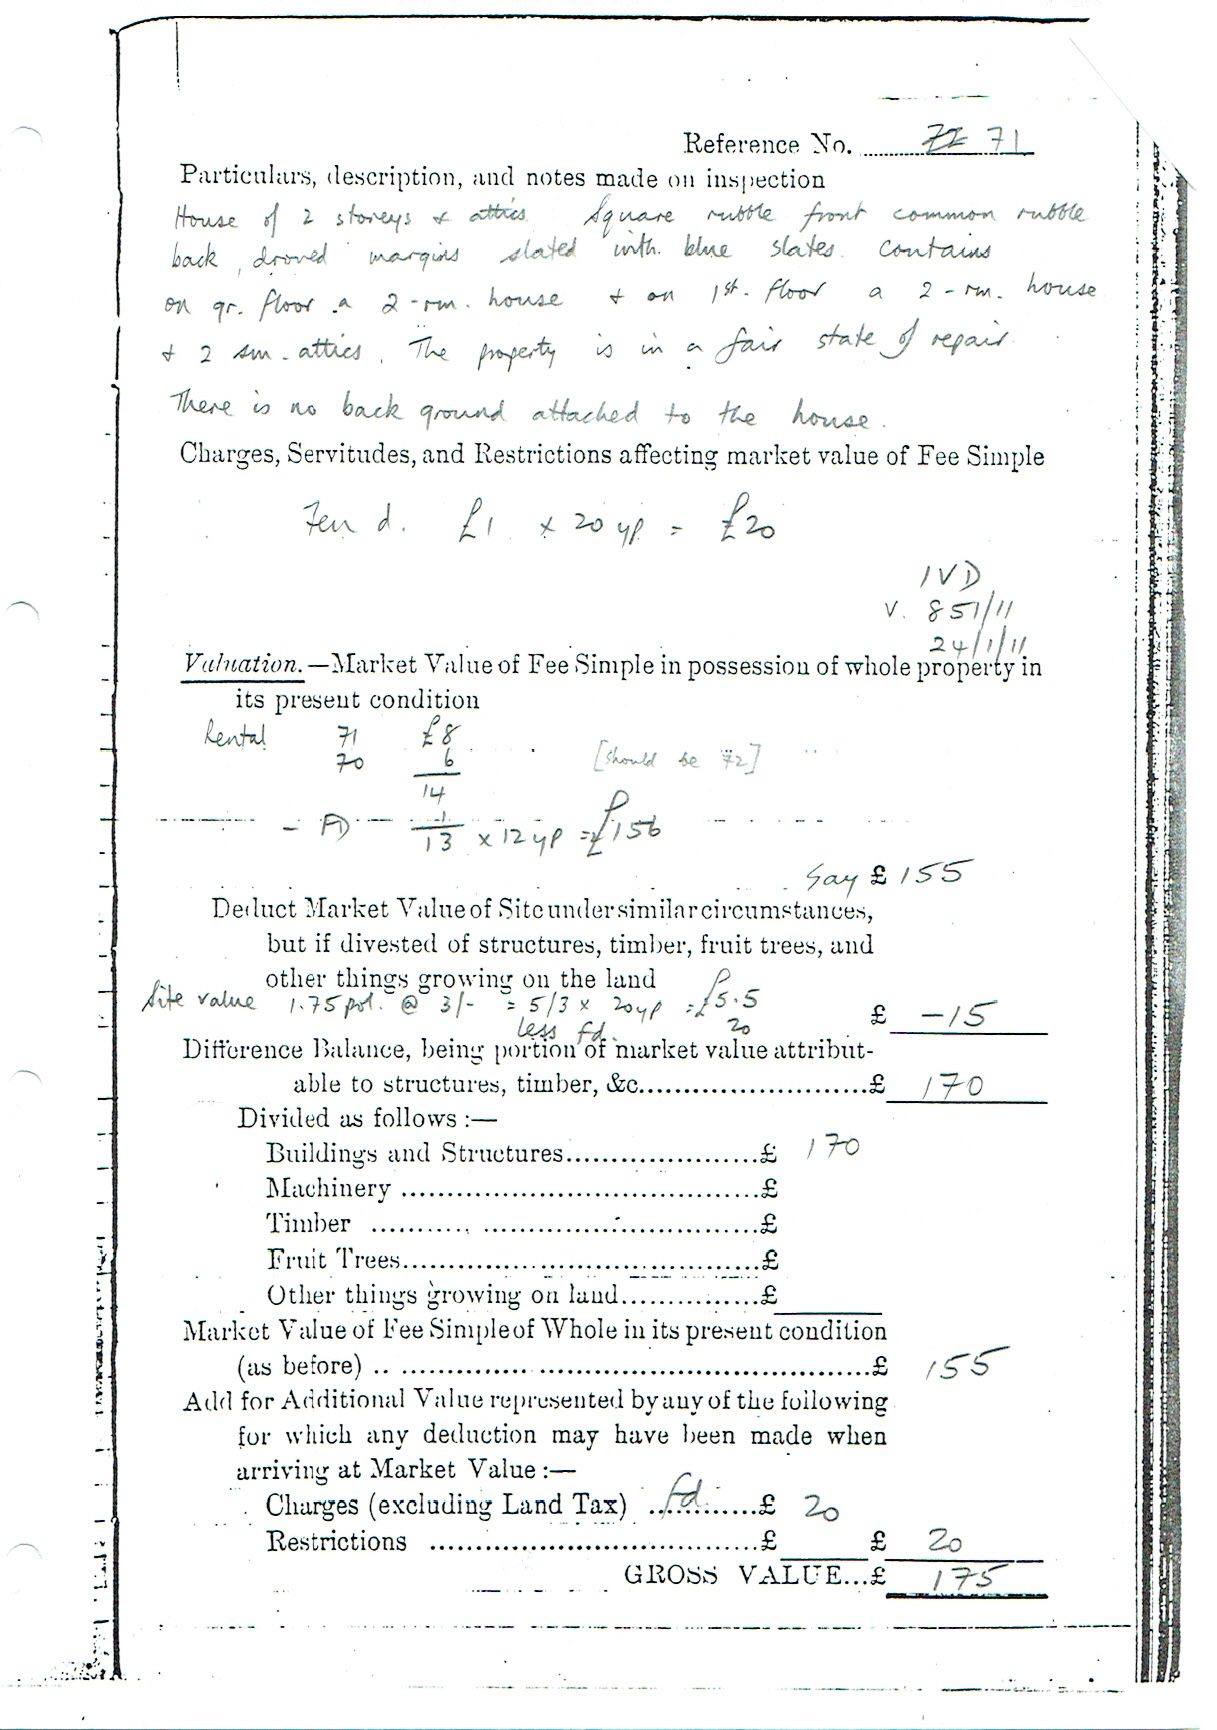 Reference No. 72 71
Particulars, description, and notes made on inspection
House of 2 storeys & attics. Square rubble front common rubble
back, droved margins slated with blue slates. contains
on gr. floor a 2-rm. house & on 1st. floor a 2-rm. house
& 2 sm. attics. The property is in a fair state of repair.
There is no back ground attached to the house.
Charges, Servitudes, and Restrictions affecting market value of Fee Simple
Feu d. £1 x 20 yp = £20
IVD
v. 851/11
24/1/11
Valuation.—Market Value of Fee Simple in possession of whole property in
its present condition
Rental 71 £8
70 6 [should be 72]
14
- FD 1
13 x 12 yp = £156
Say £ 155
Deduct Market Value of Site under similar circumstances,
but if divested of structures, timber, fruit trees, and
other things growing on the land
Site value 1.75 pol. @ 3/- = 5/3 x 20yp = £5.5
less fd. 20
£ -15
Difference Balance, being portion of market value attribut-
able to structures, timber, &c.........................£ 170
Divided as follows :—
Buildings and Structures.....................£ 170
Machinery ......................................£
Timber ......................................£
Fruit Trees......................................£
Other things growing on land...............£
Market Value of Fee Simple of Whole in its present condition
(as before) ......................................£ 155
Add for Additional Value represented by any of the following
for which any deduction may have been made when
arriving at Market Value :—
Charges (excluding Land Tax) ..fd.......£ 20
Restrictions ......................................£ £ 20
GROSS VALUE...£ 175